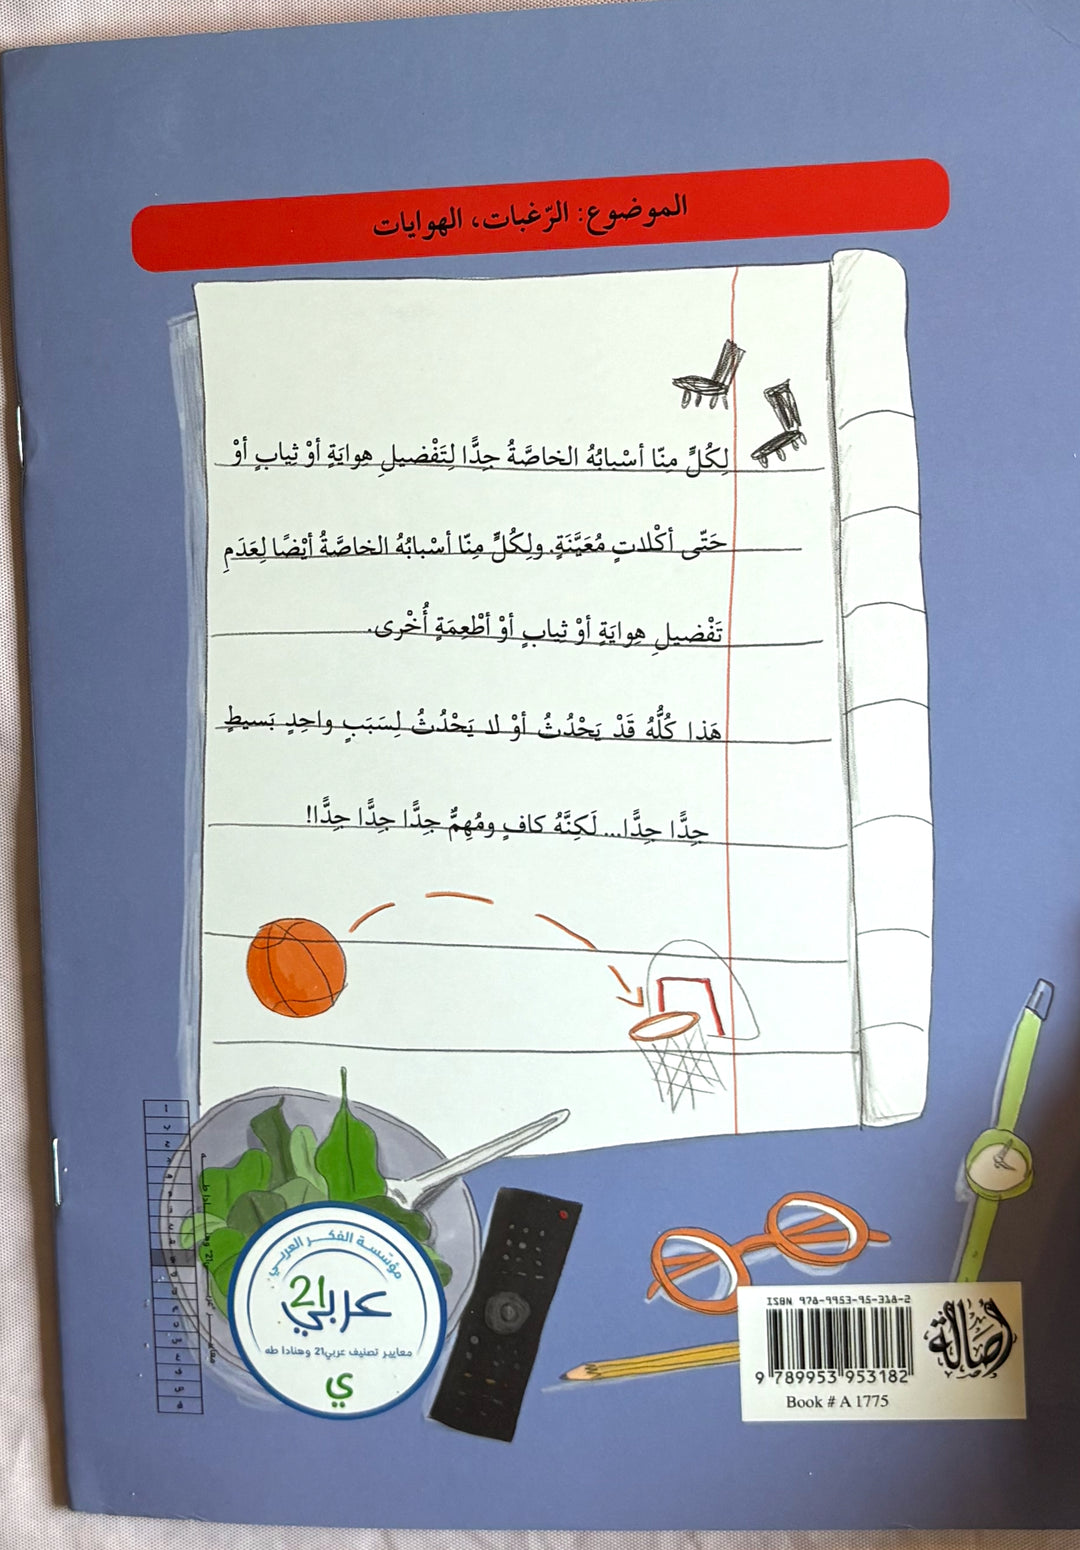 الموضوع: الرّغبات، الهوايات
لِكُلٍّ مِنّا أسْبابُهُ الخاصَّةُ جِدًّا لِتَفْضيلِ هِوايَةٍ أوْ ثِيابٍ أوْ
حَتّى أكْلاتٍ مُعَيَّنَةٍ. ولِكُلٍّ مِنّا أسْبابُهُ الخاصَّةُ أيْضًا لِعَدَمِ
تَفْضيلِ هِوايَةٍ أوْ ثِيابٍ أوْ أطْعِمَةٍ أُخْرى.
هَذا كُلُّهُ قَدْ يَحْدُثُ أوْ لا يَحْدُثُ لِسَبَبٍ واحِدٍ بَسيطٍ
جِدًّا جِدًّا... لَكِنَّهُ كافٍ ومُهِمٌّ جِدًّا جِدًّا جِدًّا!
مؤسّسة الفكر العربي
عربي 21
معايير تصنيف عربي21 وهنادا طه
ي
ISBN 978-9953-95-318-2
9 789953 953182
Book # A 1775
أصالة